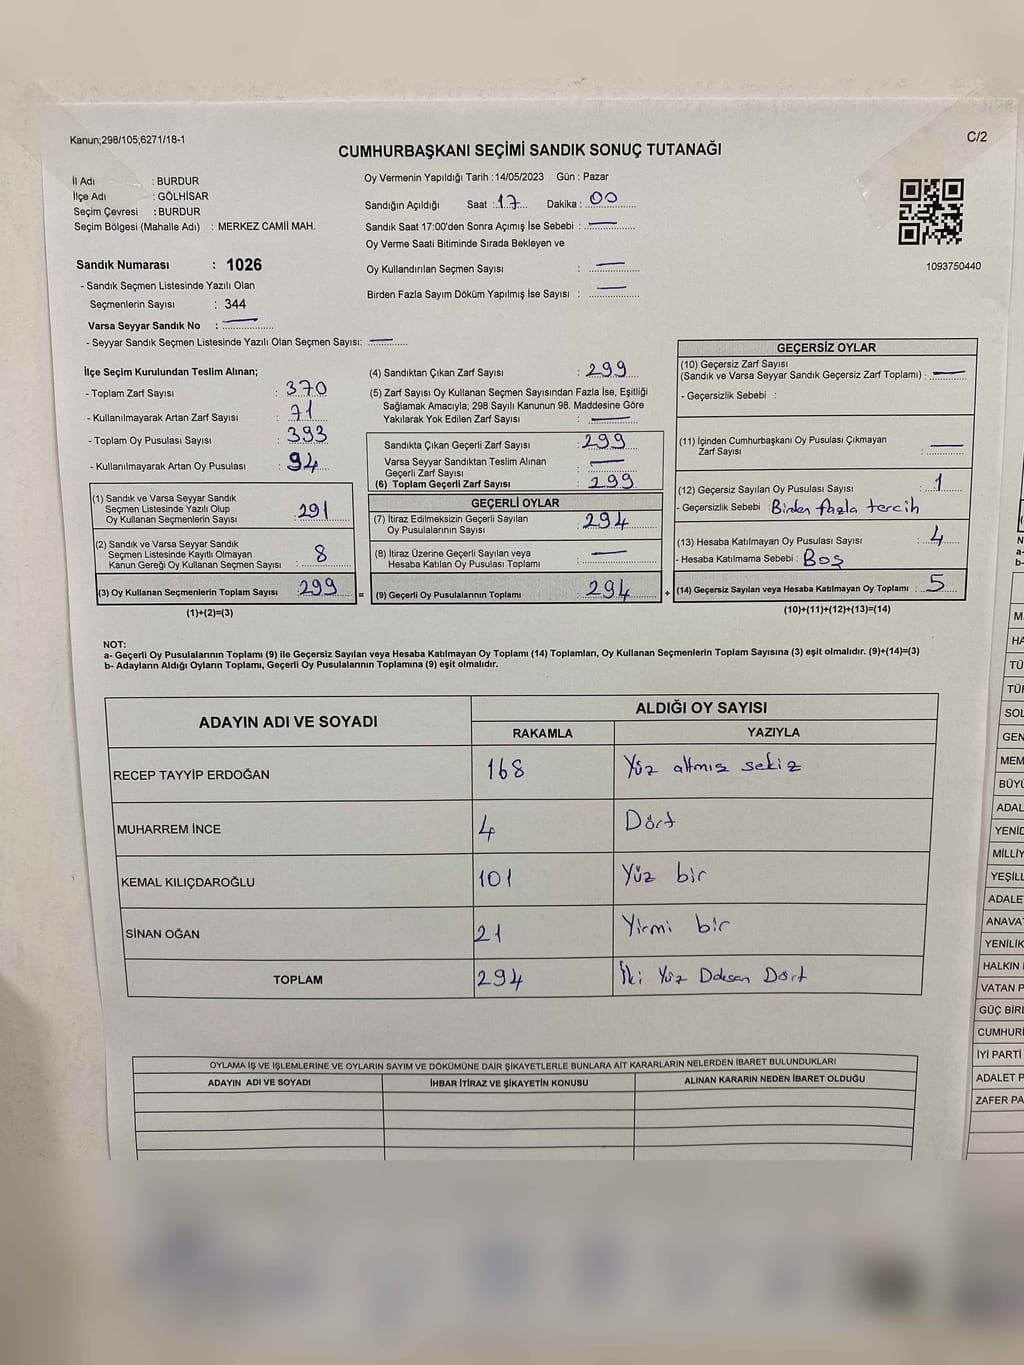 Kanun;298/105;6271/18-1
C/2
CUMHURBAŞKANI SEÇİMİ SANDIK SONUÇ TUTANAĞI
İl Adı : BURDUR
İlçe Adı : GÖLHİSAR
Seçim Çevresi : BURDUR
Seçim Bölgesi (Mahalle Adı) : MERKEZ CAMİİ MAH.
Sandık Numarası : 1026
- Sandık Seçmen Listesinde Yazılı Olan
Seçmenlerin Sayısı : 344
Varsa Seyyar Sandık No :
- Seyyar Sandık Seçmen Listesinde Yazılı Olan Seçmen Sayısı:
Oy Vermenin Yapıldığı Tarih :14/05/2023 Gün : Pazar
Sandığın Açıldığı Saat : 17 Dakika : 00
Sandık Saat 17:00'den Sonra Açımış İse Sebebi :
Oy Verme Saati Bitiminde Sırada Bekleyen ve
Oy Kullandırılan Seçmen Sayısı :
Birden Fazla Sayım Döküm Yapılmış İse Sayısı :
1093750440
İlçe Seçim Kurulundan Teslim Alınan;
- Toplam Zarf Sayısı : 370
- Kullanılmayarak Artan Zarf Sayısı : 71
- Toplam Oy Pusulası Sayısı : 393
- Kullanılmayarak Artan Oy Pusulası : 94
(1) Sandık ve Varsa Seyyar Sandık
Seçmen Listesinde Yazılı Olup
Oy Kullanan Seçmenlerin Sayısı : 291
(2) Sandık ve Varsa Seyyar Sandık
Seçmen Listesinde Kayıtlı Olmayan
Kanun Gereği Oy Kullanan Seçmen Sayısı : 8
(3) Oy Kullanan Seçmenlerin Toplam Sayısı : 299
(1)+(2)=(3)
(4) Sandıktan Çıkan Zarf Sayısı : 299
(5) Zarf Sayısı Oy Kullanan Seçmen Sayısından Fazla İse, Eşitliği
Sağlamak Amacıyla; 298 Sayılı Kanunun 98. Maddesine Göre
Yakılarak Yok Edilen Zarf Sayısı :
Sandıkta Çıkan Geçerli Zarf Sayısı : 299
Varsa Seyyar Sandıktan Teslim Alınan
Geçerli Zarf Sayısı :
(6) Toplam Geçerli Zarf Sayısı : 299
GEÇERLİ OYLAR
(7) İtiraz Edilmeksizin Geçerli Sayılan
Oy Pusulalarının Sayısı : 294
(8) İtiraz Üzerine Geçerli Sayılan veya
Hesaba Katılan Oy Pusulası Toplamı :
= (9) Geçerli Oy Pusulalarının Toplamı : 294 +
GEÇERSİZ OYLAR
(10) Geçersiz Zarf Sayısı
(Sandık ve Varsa Seyyar Sandık Geçersiz Zarf Toplamı) :
- Geçersizlik Sebebi :
(11) İçinden Cumhurbaşkanı Oy Pusulası Çıkmayan
Zarf Sayısı :
(12) Geçersiz Sayılan Oy Pusulası Sayısı : 1
- Geçersizlik Sebebi : Birden fazla tercih
(13) Hesaba Katılmayan Oy Pusulası Sayısı : 4
- Hesaba Katılmama Sebebi : Boş
(14) Geçersiz Sayılan veya Hesaba Katılmayan Oy Toplamı : 5
(10)+(11)+(12)+(13)=(14)
NOT:
a- Geçerli Oy Pusulalarının Toplamı (9) ile Geçersiz Sayılan veya Hesaba Katılmayan Oy Toplamı (14) Toplamları, Oy Kullanan Seçmenlerin Toplam Sayısına (3) eşit olmalıdır. (9)+(14)=(3)
b- Adayların Aldığı Oyların Toplamı, Geçerli Oy Pusulalarının Toplamına (9) eşit olmalıdır.
ADAYIN ADI VE SOYADI ALDIĞI OY SAYISI
RAKAMLA YAZIYLA
RECEP TAYYİP ERDOĞAN 168 Yüz altmış sekiz
MUHARREM İNCE 4 Dört
KEMAL KILIÇDAROĞLU 101 Yüz bir
SİNAN OĞAN 21 Yirmi bir
TOPLAM 294 İki Yüz Doksan Dört
OYLAMA İŞ VE İŞLEMLERİNE VE OYLARIN SAYIM VE DÖKÜMÜNE DAİR ŞİKAYETLERLE BUNLARA AİT KARARLARIN NELERDEN İBARET BULUNDUKLARI
ADAYIN ADI VE SOYADI İHBAR İTİRAZ VE ŞİKAYETİN KONUSU ALINAN KARARIN NEDEN İBARET OLDUĞU
HA
TÜ
TÜR
SOL
GEN
MEM
BÜYÜ
ADAL
YENİD
MİLLİY
YEŞİLL
ADALE
ANAVA
YENİLİK
HALKIN
VATAN P
GÜÇ BİRL
CUMHURİ
İYİ PARTİ
ADALET P
ZAFER PA